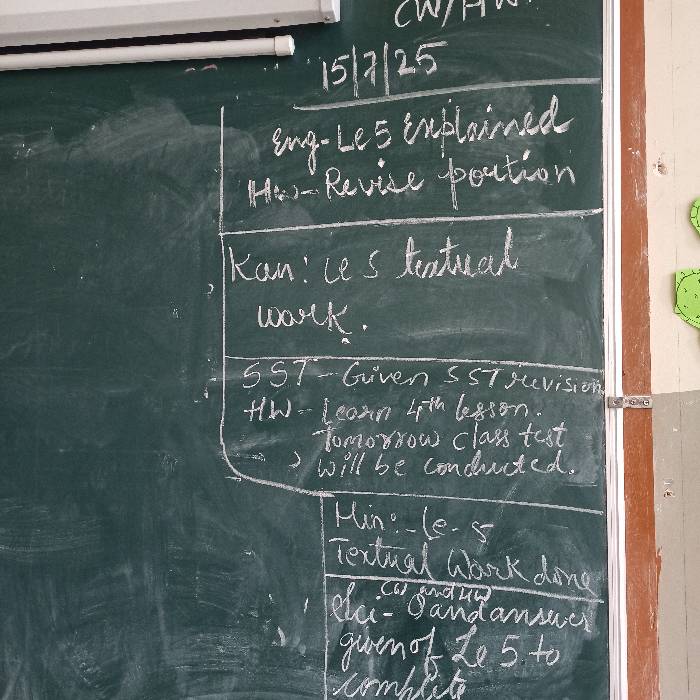 CW/HW.
15/7/25
Eng-Le 5 Explained
HW-Revise portion
Kan: Le 5 textual
work.
SST-Given SST revision
HW-Learn 4th lesson.
Tomorrow class test
will be conducted.
Hin:-Le-5
Textual Work done
CW and HW
Sci-Q and answer
given of Le 5 to
complete